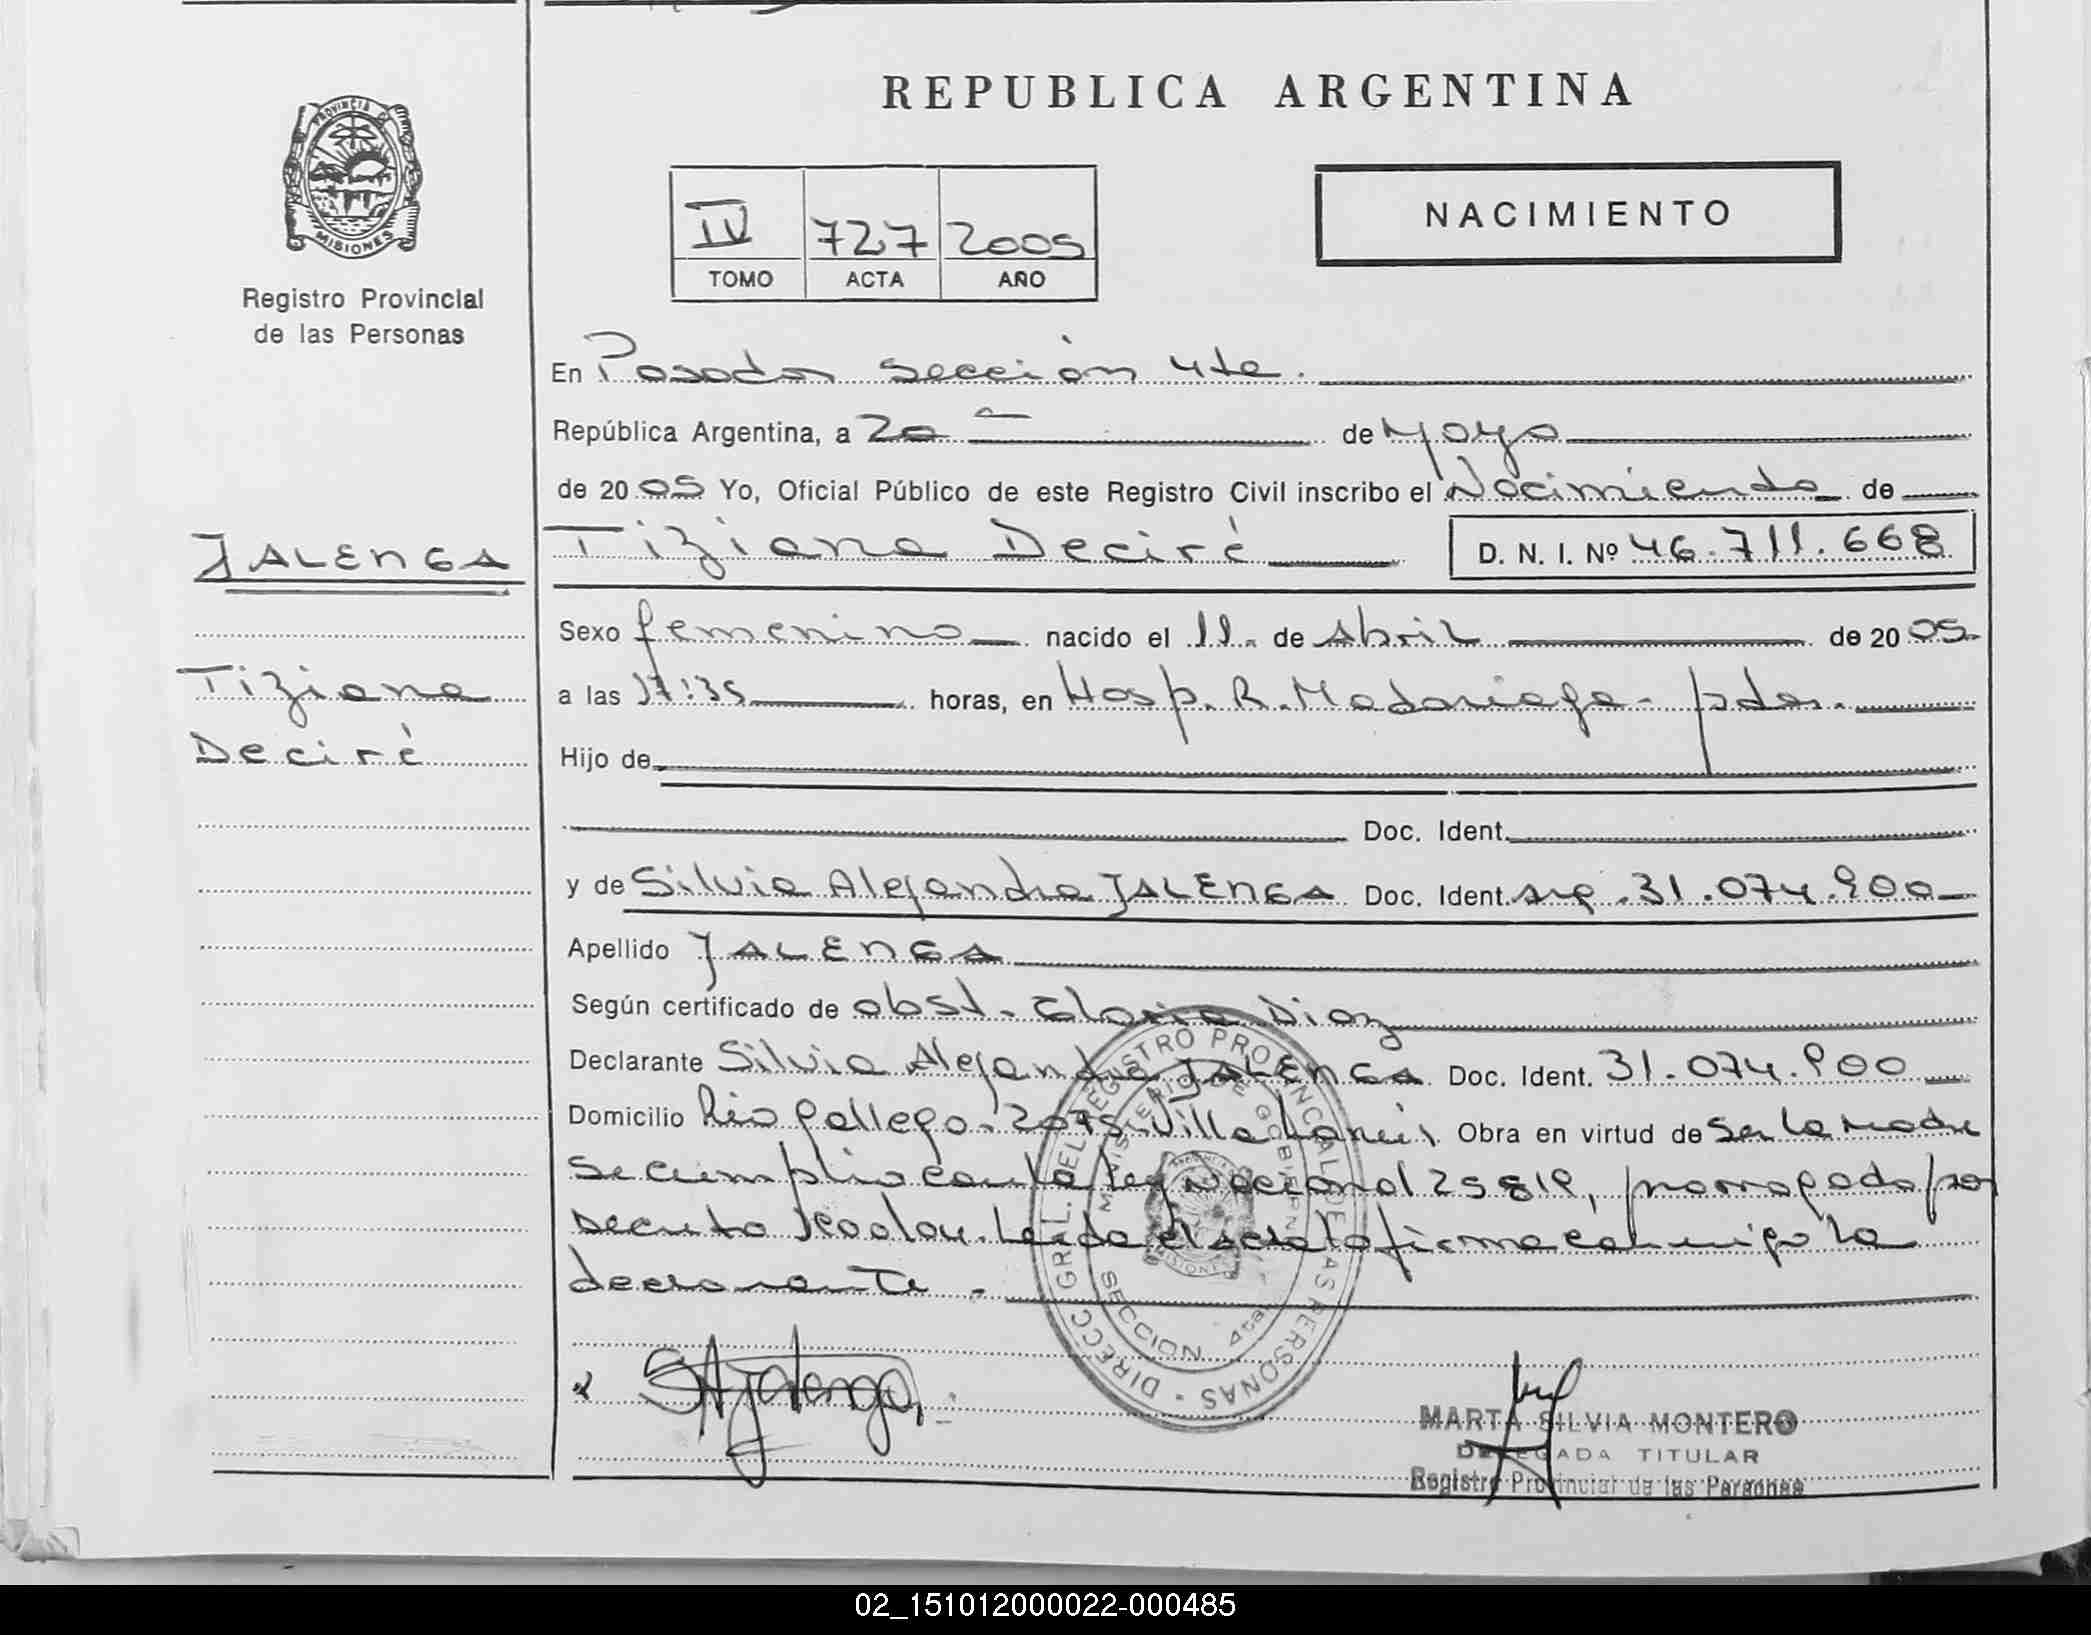 REPUBLICA ARGENTINA
PROVINCIA DE
MISIONES
Registro Provincial
de las Personas
NACIMIENTO
IV 727 2005
TOMO ACTA AÑO
En Posadas sección 4ta.
República Argentina, a 20 de Mayo
de 2005 Yo, Oficial Público de este Registro Civil inscribo el Nacimiento de
JALENGA
Tiziana
Deciré
Tiziana Deciré D. N. I. Nº 46.711.668
Sexo femenino nacido el 11 de Abril de 2005
a las 17:35 horas, en Hosp. R. Madariaga - pdas.
Hijo de
Doc. Ident.
y de Silvia Alejandra JALENGA Doc. Ident. arg. 31.074.900
Apellido JALENGA
Según certificado de obst. Gloria Diaz
Declarante Silvia Alejandra JALENGA Doc. Ident. 31.074.900
Domicilio Rio gallego. 2075 Villa Lanús Obra en virtud de ser la madre
se cumplio con la ley Nacional 25819, prorrogado por
Decreto Leida el acta la firma conmigo la
declarante.
DIRECC. GRL. DEL REGISTRO PROVINCIAL DE LAS PERSONAS
MINISTERIO DE GOBIERNO
SECCION 4ta
SAJalenga
MARTA SILVIA MONTERO
DELEGADA TITULAR
Registro Provincial de las Personas
02_151012000022-000485